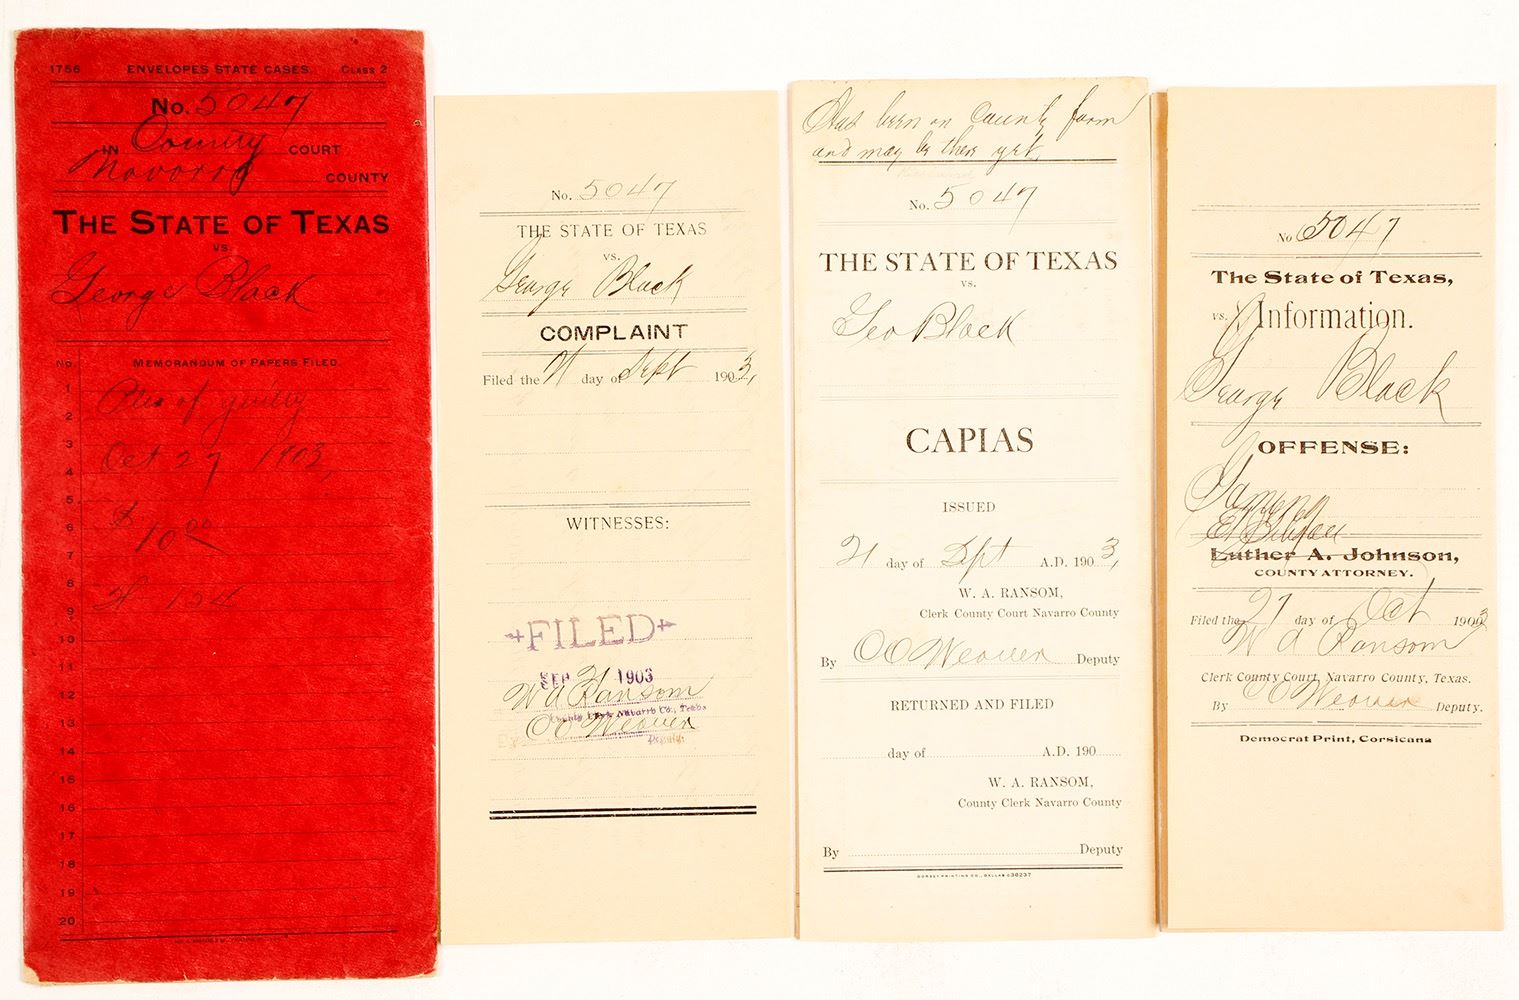 1756 ENVELOPES STATE CASES. CLASS 2
No. 5047
IN County COURT
Navarro COUNTY
THE STATE OF TEXAS
VS.
George Black
No. MEMORANDUM OF PAPERS FILED.
1 Plea of guilty
2
3 Oct 27 1903,
4
5
6 $10 00
7
8
9
10
11
12
13
14
15
16
17
18
19
20
No. 5047
THE STATE OF TEXAS
vs.
George Black
COMPLAINT
Filed the 21 day of Sept 1903,
WITNESSES:
FILED
SEP 21 1903
W A Ransom
County Clerk Navarro Co., Texas
By OO Weaver
Deputy.
Has been on County farm
and may be there yet.
No. 5047
THE STATE OF TEXAS
vs.
Geo Black
CAPIAS
ISSUED
21 day of Sept A.D. 1903,
W. A. RANSOM,
Clerk County Court Navarro County
By OO Weaver Deputy
RETURNED AND FILED
day of A.D. 190
W. A. RANSOM,
County Clerk Navarro County
By Deputy
DORSEY PRINTING CO., DALLAS
No 5047
The State of Texas,
vs. Information.
George Black
OFFENSE:
Gaming
Luther A. Johnson,
COUNTY ATTORNEY.
Filed the 27 day of Oct 1903
W A Ransom
Clerk County Court, Navarro County, Texas.
By OO Weaver Deputy.
Democrat Print, Corsicana